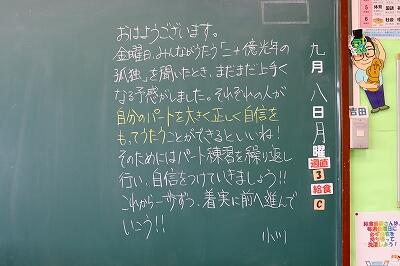 おはようございます。
金曜日、みんながうたう「二十億光年の
孤独」を聞いたとき、まだまだ上手く
なる予感がしました。それぞれの人が
自分のパートを大きく正しく自信を
もってうたうことができるといいね!
そのためにはパート練習を繰り返し
行い、自信をつけていきましょう!!
これから一歩ずつ、着実に前へ進んで
いこう!!
小川
九月八日月曜
週直
3
給食
C
吉田